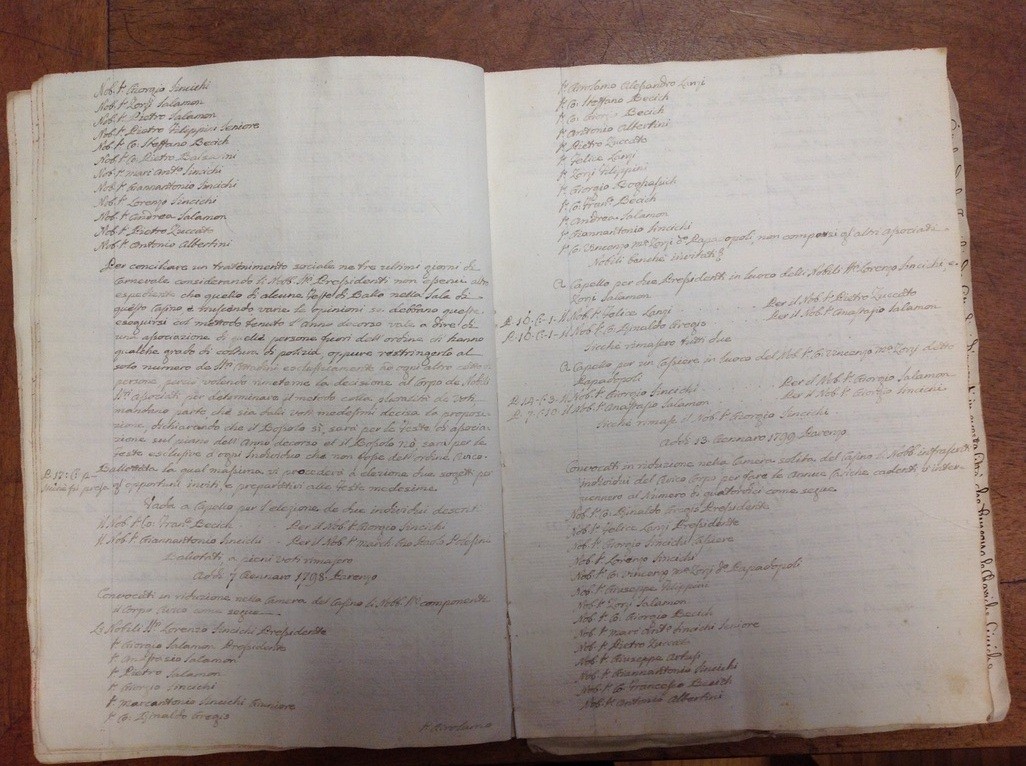 Nob. Sr. Giorgio Sincichi
Nob. Sr. Zorzi Salamon
Nob. Sr. Pietro Salamon
Nob. Sr. Pietro Filippini Seniore
Nob. Sr. Co: Steffano Becich
Nob. Sr. Co: Pietro
Nob. Sr. Marc Ant.o Sincich
Nob. Sr. Giannantonio Sincichi
Nob. Sr. Lorenzo Sincichi
Nob. Sr. Andrea Salamon
Nob. Sr. Pietro Zuccato
Nob. Sr. Antonio Albertini
Per conciliare un trattenimento sociale ne tre ultimi giorni di
Carnevale considerando li Nob. Sri. Presidenti non esservi altro
espediente che quello di alcune Feste di Ballo nella Sala di
questo Casino e riuscendo varie le opinioni se debbano queste
eseguirsi col metodo tenuto l'Anno decorso vale a dire di
una associazione di quelle persone fuori dell'ordine di hanno
qualche grado di coltura di polizia, oppure restringerlo al
solo numero de Sri. esclusivamente ad ogni altro ceto di
persone perciò volendo rimetterne la decisione al Corpo de Nobili
Sri. Associati per determinare il metodo colla pluralità de Voti,
mandano parte, che sia dalli voti medesimi decisa la proposi-
zione, dichiarando che il Bossolo si, sarà per le Feste di associa-
zione sul piano dell'Anno decorso et il Bossolo nò sarà per le
Feste esclusive d'ogni Individuo che non fosse dell'ordine Civico.
P. 17: C: 2 Ballottata la qual massima, si procederà à elezione due sogetti per
gl'opportuni inviti, e preparativi alle Feste medesime.
Vada a Capello per l'elezione de due individui descrit.
Il Nob. Sr. Co: Fran.o Becich Per il Nob. Sr. Giorgio Sincichi
Il Nob. Sr. Giannantonio Sincichi Per il Nob. Sr. March. Gio Paolo Polesini
Ballottati a pieni voti rimasero
Addi 7 Gennaro 1798 Parenzo
Convocati in riduzione nella Camera del Casino li Nobb. Sri. componenti
il Corpo Civico come segue
Li Nobili Sri. Lorenzo Sincichi Presidente
Sr. Giorgio Salamon Presidente
Sr. Anastasio Salamon
Sr. Pietro Salamon
Sr. Giorgio Sincichi
Sr. Marcantonio Sincichi Juniore
Sr. Co: Rinaldo Gregis
Sr. Girolamo
Sr. Girolamo Alessandro Zorzi
Sr. Co: Steffano Becich
Sr. Co: Giorgio Becich
Sr. Antonio Albertini
Sr. Pietro Zuccato
Sr. Felice Zorzi
Sr. Zorzi Filippini
Sr. Giorgio
Sr. Co: Fran.o Becich
Sr. Andrea Salamon
Sr. Giannantonio Sincichi
Sr. Co: Vincenzo Ma. Zorzi d.o Papadopoli, non comparsi gl'altri associati
Nobili benché invitati
A Capello per due Presidenti in luoco delli Nobili Sri. Lorenzo Sincichi, e
Zorzi Salamon
P. 16: C: 1 - Il Nob. Sr. Felice Zorzi Per il Nob. Sr. Pietro Zuccato
P. 16: C: 1 - Il Nob. Sr. Co: Rinaldo Gregis Per il Nob. Sr. Anastasio Salamon
Sicché rimasero tutti due
A Capello per un Cassiere in luoco del Nob. Sr. Co: Vincenzo Ma. Zorzi detto
Papadopoli
P. 14: C: 3 - Il Nob. Sr. Giorgio Sincichi Per il Nob. Sr. Giorgio Salamon
P. 7: C: 10 Il Nob. Sr. Anastasio Salamon Per il Nob. Sr. Giorgio Sincichi
Sicché rimase il Nob. Sr. Giorgio Sincichi
Addi 13 Gennaro 1799 Parenzo
Convocati in riduzione nella Camera solita del Casino li Nobb. infrascritti
individui del Civico Corpo per fare le Annue Cariche cadenti ed inter-
vennero al Numero di quatordici come segue
Nob. Sr. Co: Rinaldo Gregis Presidente
Nob. Sr. Felice Zorzi Presidente
Nob. Sr. Giorgio Sincichi Cassiere
Nob. Sr. Lorenzo Sincichi
Nob. Sr. Co: Vincenzo Ma. Zorzi d.o Papadopoli
Nob. Sr. Giuseppe Filippini
Nob. Sr. Zorzi Salamon
Nob. Sr. Co: Giorgio Becich
Nob. Sr. Marc Ant.o Sincichi Seniore
Nob. Sr. Pietro Zuccato
Nob. Sr. Giuseppe
Nob. Sr. Giannantonio Sincichi
Nob. Sr. Co: Francesco Becich
Nob. Sr. Antonio Albertini